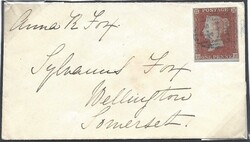 Anna R Fox
Sylvanus Fox
Wellington
Somerset.
POSTAGE